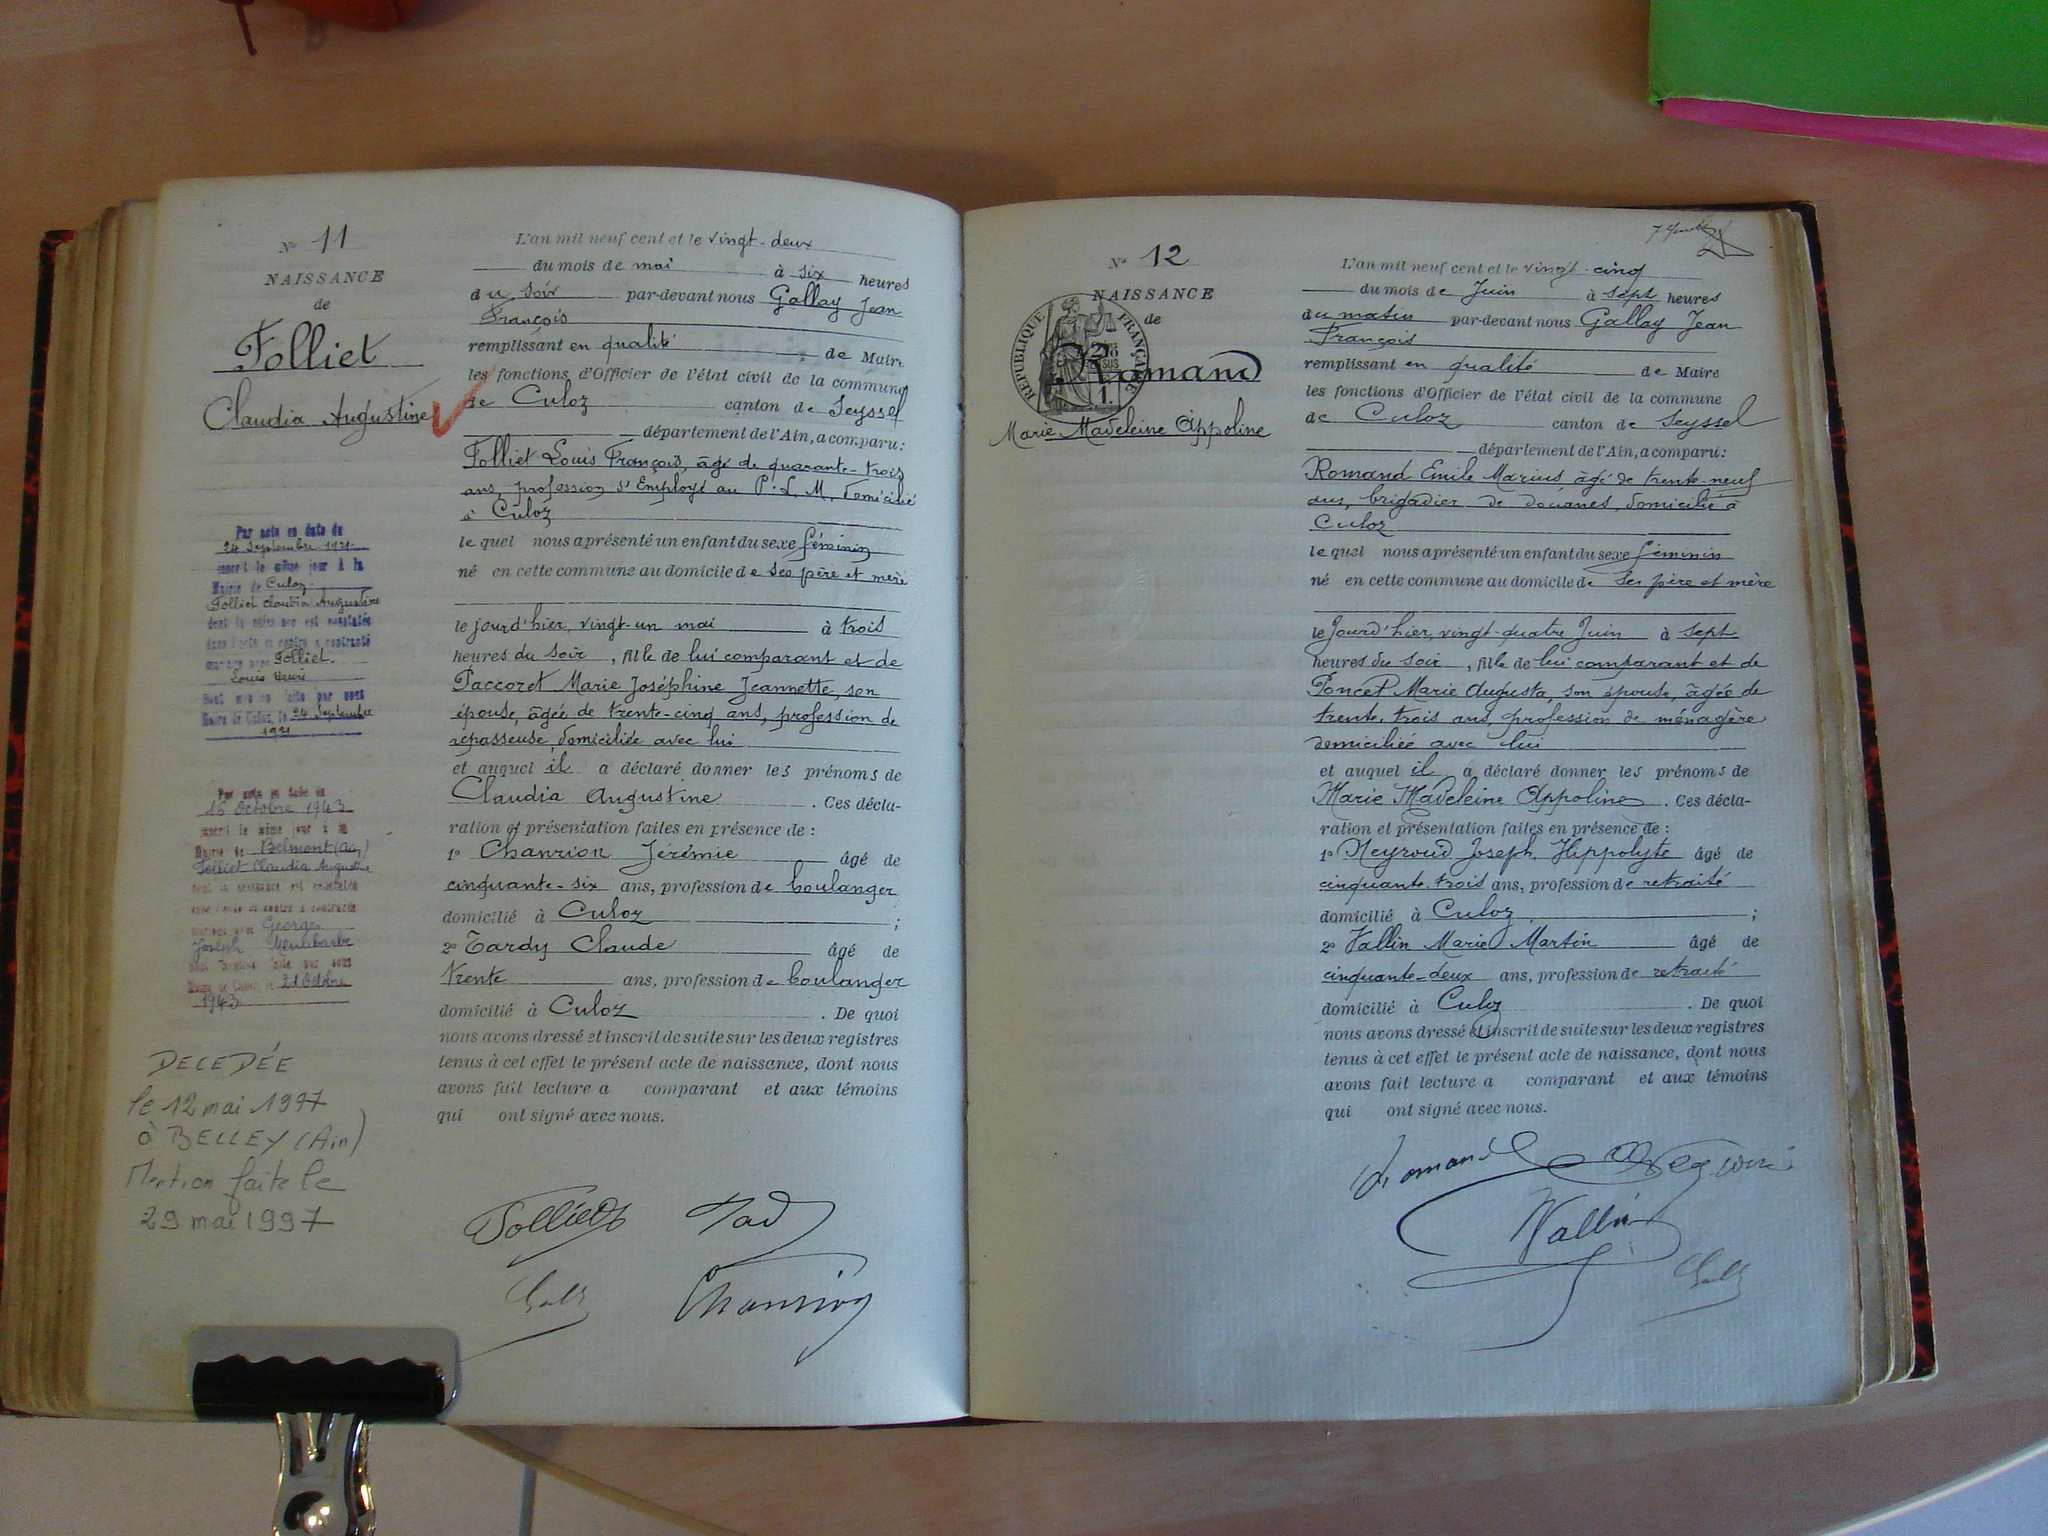 N° 11
NAISSANCE
de
Folliet
Claudia Augustine
Par acte en date du
24 Septembre 1921
inscrit le même jour à la
Mairie de Culoz
Folliet Claudia Augustine
dont la naissance est constatée
dans l'acte ci-contre a contracté
mariage avec Folliet
Louis Henri
Mairie de Culoz, le 24 Septembre
1921
Par acte en date du
16 Octobre 1943
inscrit le même jour à la
Mairie de Belmont (Ain)
Folliet Claudia Augustine
Georges
Joseph
Mairie de Culoz, le 21 Octobre
1943
DECEDÉE
le 12 mai 1997
à BELLEY (Ain)
Mention faite le
29 mai 1997
L'an mil neuf cent et le vingt-deux
du mois de mai à six heures
du soir par-devant nous Gallay Jean
François
remplissant en qualité de Maire
les fonctions d'Officier de l'état civil de la commune
de Culoz canton de Seyssel
département de l'Ain, a comparu :
Folliet Louis François, âgé de quarante-trois
ans, profession d'Employé au P. L. M. domicilié
à Culoz
lequel nous a présenté un enfant du sexe féminin
né en cette commune au domicile de ses père et mère
le jourd'hier, vingt-un mai à trois
heures du soir, fille de lui comparant et de
Paccoret Marie Joséphine Jeannette, son
épouse, âgée de trente-cinq ans, profession de
repasseuse, domiciliée avec lui
et auquel il a déclaré donner les prénoms de
Claudia Augustine . Ces décla-
ration et présentation faites en présence de :
1° Chanrion Jérémie âgé de
cinquante-six ans, profession de boulanger
domicilié à Culoz ;
2° Tardy Claude âgé de
trente ans, profession de boulanger
domicilié à Culoz . De quoi
nous avons dressé et inscrit de suite sur les deux registres
tenus à cet effet le présent acte de naissance, dont nous
avons fait lecture a comparant et aux témoins
qui ont signé avec nous.
Folliet Tard
Gall Chanrion
N° 12
NAISSANCE
de
RÉPUBLIQUE FRANÇAISE
Romand
Marie Madeleine Appoline
L'an mil neuf cent et le vingt-cinq
du mois de Juin à sept heures
du matin par-devant nous Gallay Jean
François
remplissant en qualité de Maire
les fonctions d'Officier de l'état civil de la commune
de Culoz canton de Seyssel
département de l'Ain, a comparu :
Romand Emile Marius âgé de trente-neuf
ans, brigadier de douanes, domicilié à
Culoz
lequel nous a présenté un enfant du sexe féminin
né en cette commune au domicile de ses père et mère
le jourd'hier, vingt-quatre Juin à sept
heures du soir, fille de lui comparant et de
Poncet Marie Augusta, son épouse, âgée de
trente-trois ans, profession de ménagère
domiciliée avec lui
et auquel il a déclaré donner les prénoms de
Marie Madeleine Appoline . Ces décla-
ration et présentation faites en présence de :
1° Neyroud Joseph Hippolyte âgé de
cinquante-trois ans, profession de retraité
domicilié à Culoz ;
2° Vallin Marie Martin âgé de
cinquante-deux ans, profession de retraité
domicilié à Culoz . De quoi
nous avons dressé et inscrit de suite sur les deux registres
tenus à cet effet le présent acte de naissance, dont nous
avons fait lecture a comparant et aux témoins
qui ont signé avec nous.
Romand Neyroud
Vallin
Gall